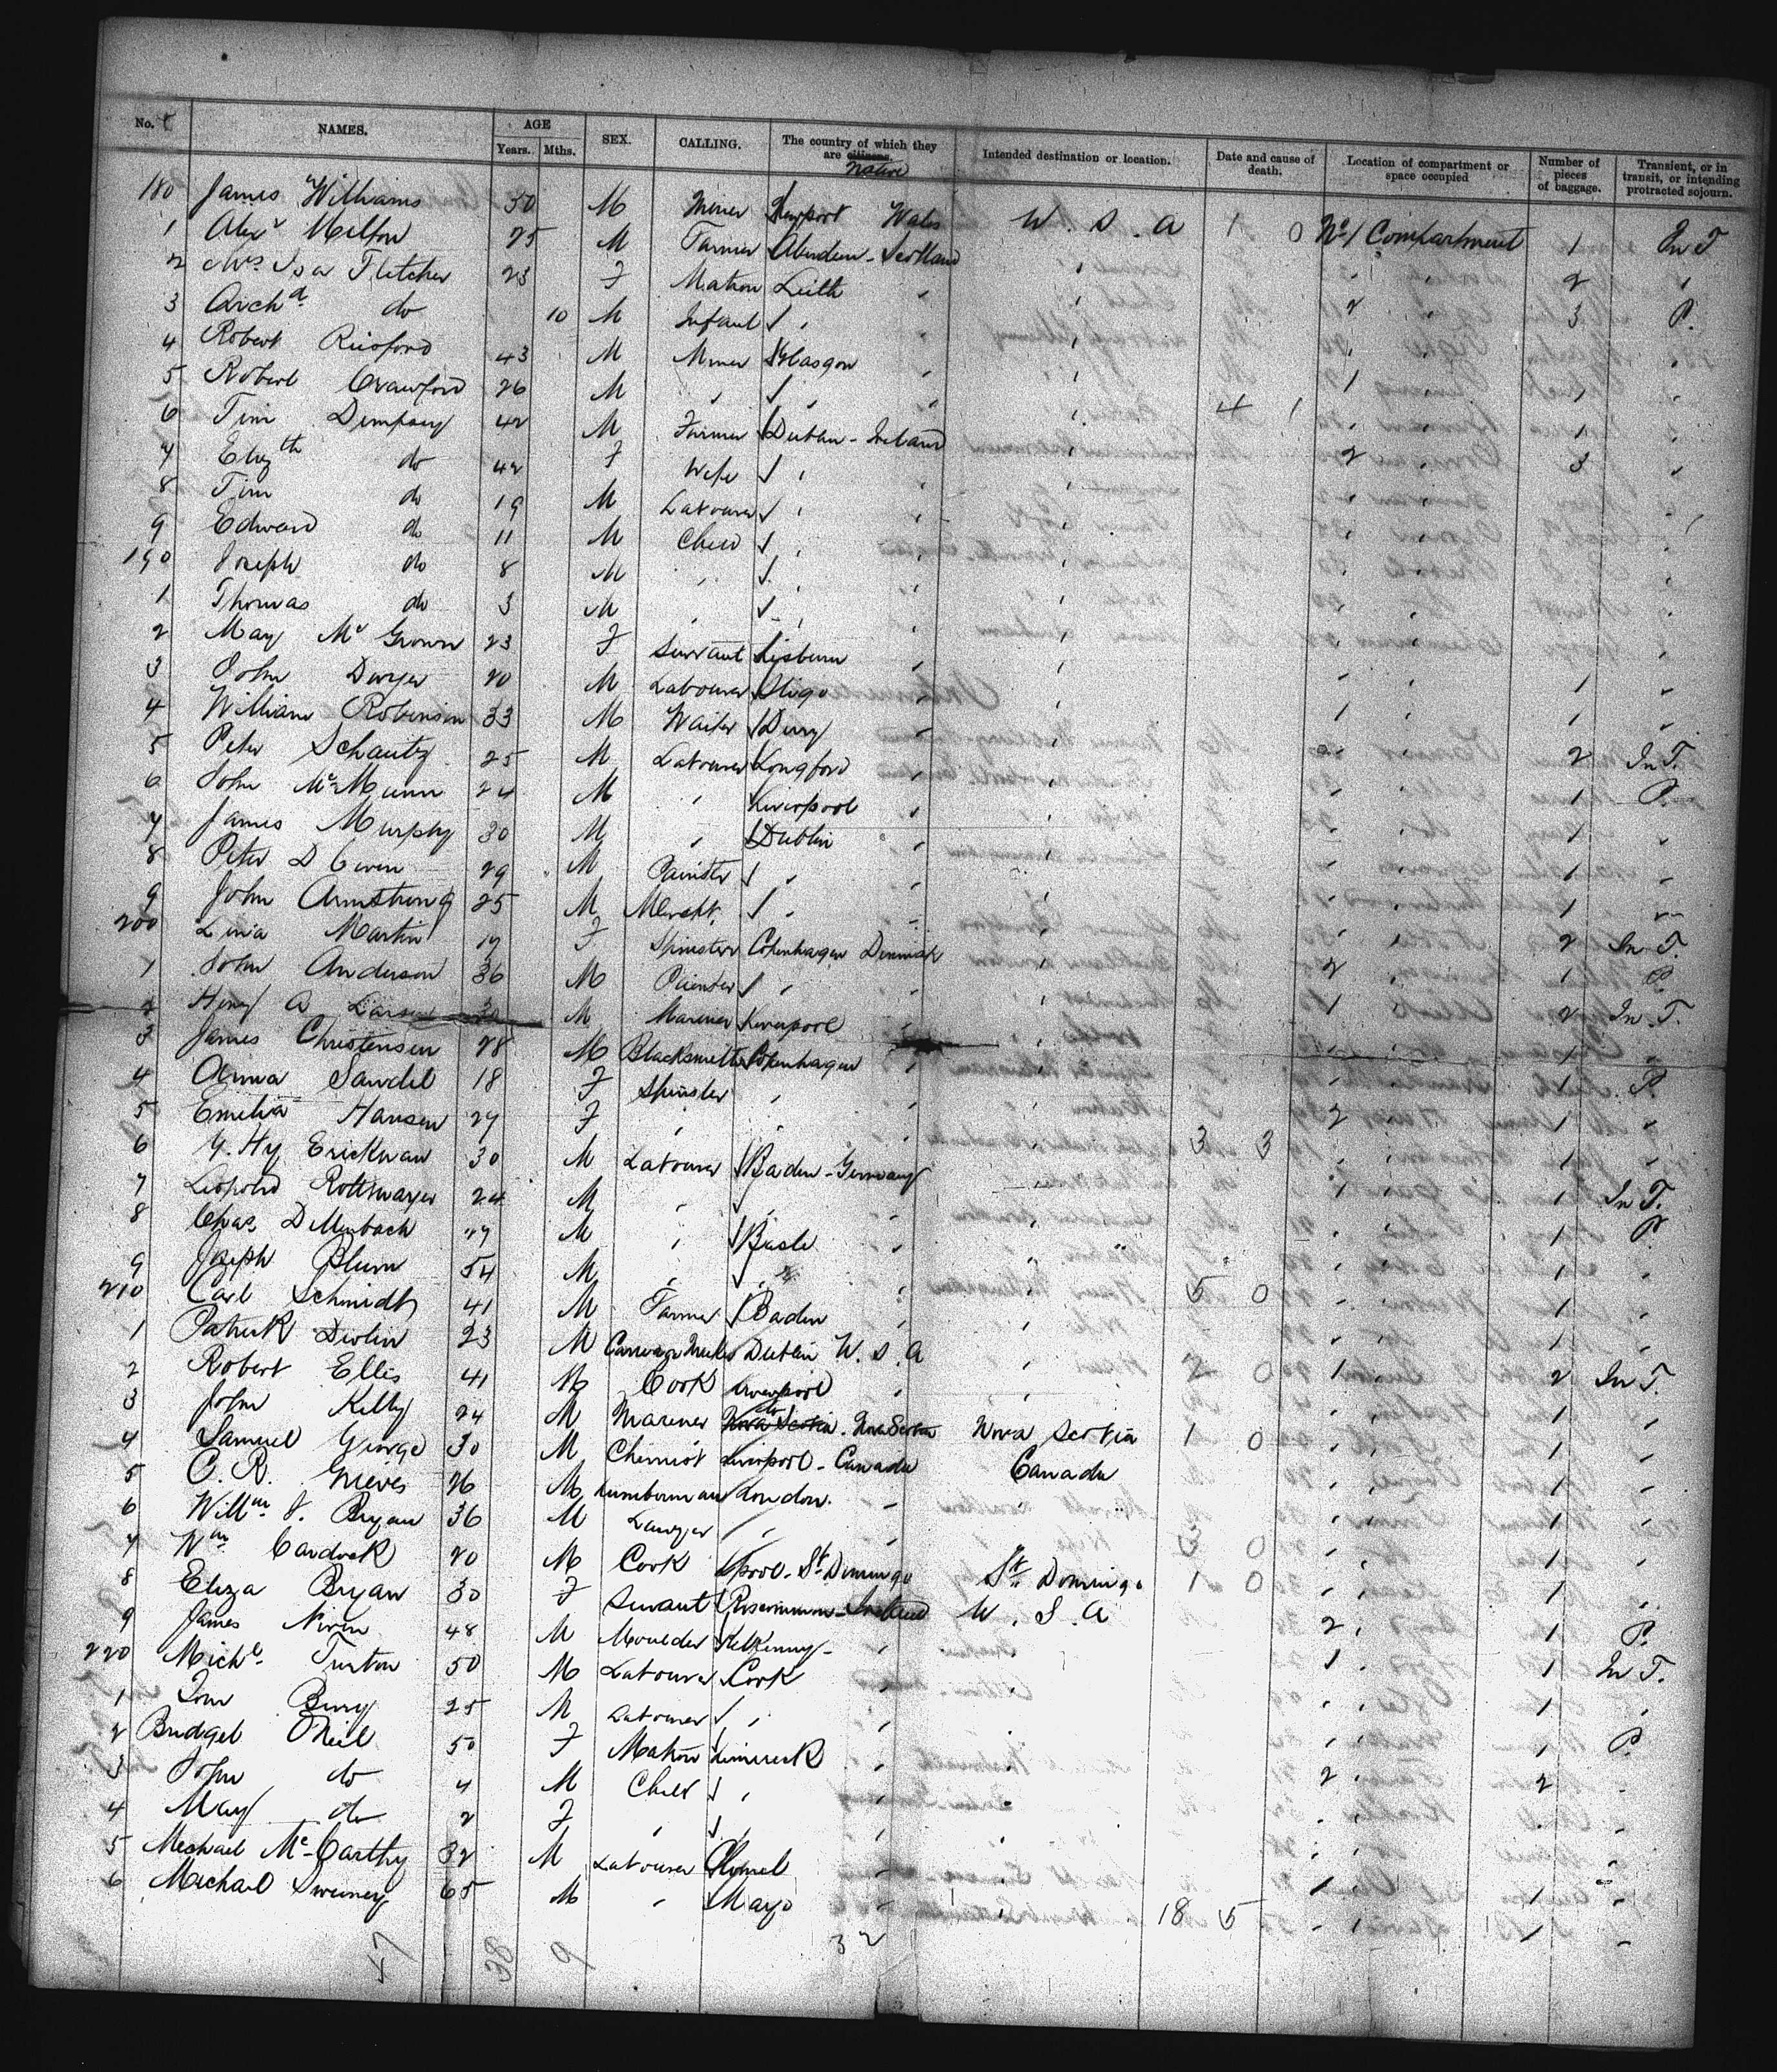 No. NAMES. AGE Years. Mths. SEX. CALLING. The country of which they are citizens. Native Intended destination or location. Date and cause of death. Location of compartment or space occupied Number of pieces of baggage. Transient, or in transit, or intending protracted sojourn.
180 James Williams 50 M Miner Newport Wales U. S. A 1 0 No 1 Compartment 1 In T
1 Alexr Melton 25 M Farmer Aberdeen - Scotland 2
2 Mrs Isa Fletcher 23 F Matron Leith 2 3 P.
3 Archd do 10 M Infant
4 Robert 43 M Miner Glasgow 1 1
5 Robert Crawford 26 M 4 1 1
6 Tim Dempsey 42 M Farmer Dublin - Ireland 2 3
7 Elizth do 42 F Wife
8 Tim do 19 M Labourer
9 Edward do 11 M Child
190 Joseph do 8 M
1 Thomas do 3 M
2 Mary Mc Grown 23 F Servant Lisburn 1
3 John Dwyer 20 M Labourer Sligo 1 1
4 William Robinson 33 M Waiter Derry 2 In T.
5 Peter Schautz 25 M Labourer Longford 1 P.
6 John McMunn 24 M Liverpool 1
7 James Murphy 30 M Dublin 1
8 Peter D Owen 29 M Painter 1
9 John Armstrong 25 M Mercht. 2 In T.
200 Linia Martin 19 F Spinster Copenhagen Denmark 2 1 P.
1 John Anderson 36 M Painter 1 2 In T.
2 Henry A Larsen 30 M Mariner Liverpool 1
3 James Christensen 28 M Blacksmith Copenhagen 1 P
4 Anna Sandel 18 F Spinster 2 1
5 Emelia Hansen 27 F 3 3 1
6 Y. Hy Erickman 30 M Labourer Baden - Germany 1 1 In T.
7 Leopold Rottmayer 24 M 1 P
8 Chas Dillenbach 47 M Basle 1
9 Joseph Blum 54 M 5 0 1
210 Carl Schmidt 41 M Farmer Baden 1
1 Patrick Devlin 23 M Carriage Maker Dublin U. S. A 2 0 1 2 In T.
2 Robert Ellis 41 M Cook Liverpool 1
3 John Kelly 24 M Mariner do Nova Scotia. Nova Scotia Nova Scotia 1 0 1
4 Samuel George 30 M Chemist Liverpool - Canada Canada 1
5 C. R. Grieves 26 M Lumberman London. 1
6 Willm J. Bryan 36 M Lawyer 3 0 1
7 Wm Cardock 20 M Cook Lpool - St Domingo St Domingo 1 0 1
8 Eliza Bryan 30 F Servant Roscommon - Ireland U. S. A 2 1 P.
9 James Niven 48 M Moulder Kilkenny - 1 1 In T.
220 Michl Turton 50 M Labourer Cork 1
1 Tom Bury 25 M Labourer 1 P.
2 Bridget ONeil 50 F Matron Limerick 2 2
3 John do 4 M Child
4 Mary do 2 F
5 Michael McCarthy 32 M Labourer Clonmel 1 1
6 Michael Sweeney 65 M Mayo 18 5 1 1
47 38 9 32